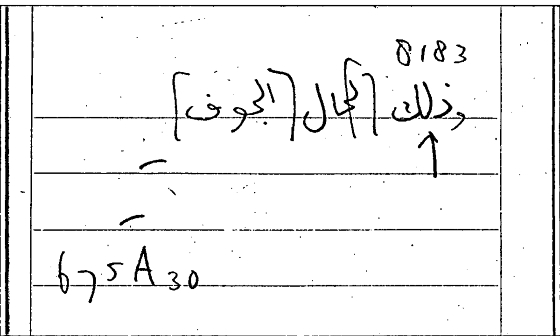 8183
وذلك الجمال [الجوف]
675A30